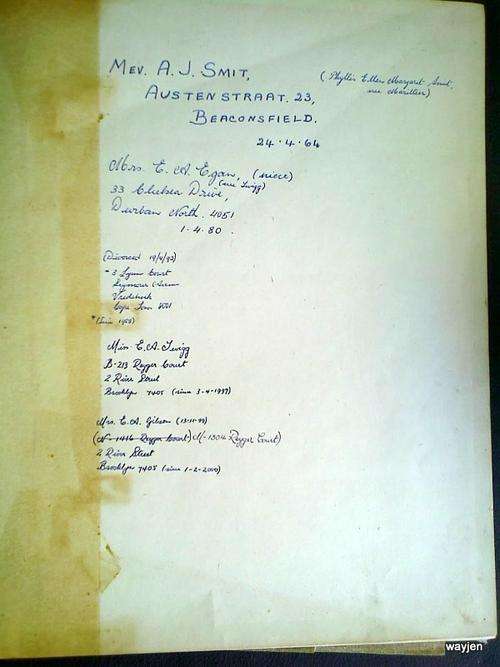 MEV. A. J. SMIT,
(Phyllis Ellen Margaret Smit,
née Marillier)
AUSTENSTRAAT. 23,
BEACONSFIELD.
24.4.64
Mrs. E. A. Egan, (niece)
(née Twigg)
33 Chelsea Drive,
Durban North. 4051
1.4.80.
(Divorced 19/4/92)
* 3 Court
Vredehoek
Cape Town 8001
* (Since 1988)
Miss E. A. Twigg
B-213 Rygger Court
2 River Street
Brooklyn 7405 (since 3-4-1997)
Mrs. E. A. Gibson (13-11-99)
(N-1416 Rygger Court) M-1304 Rygger Court)
2 River Street
Brooklyn 7405 (since 1-2-2000)
wayjen